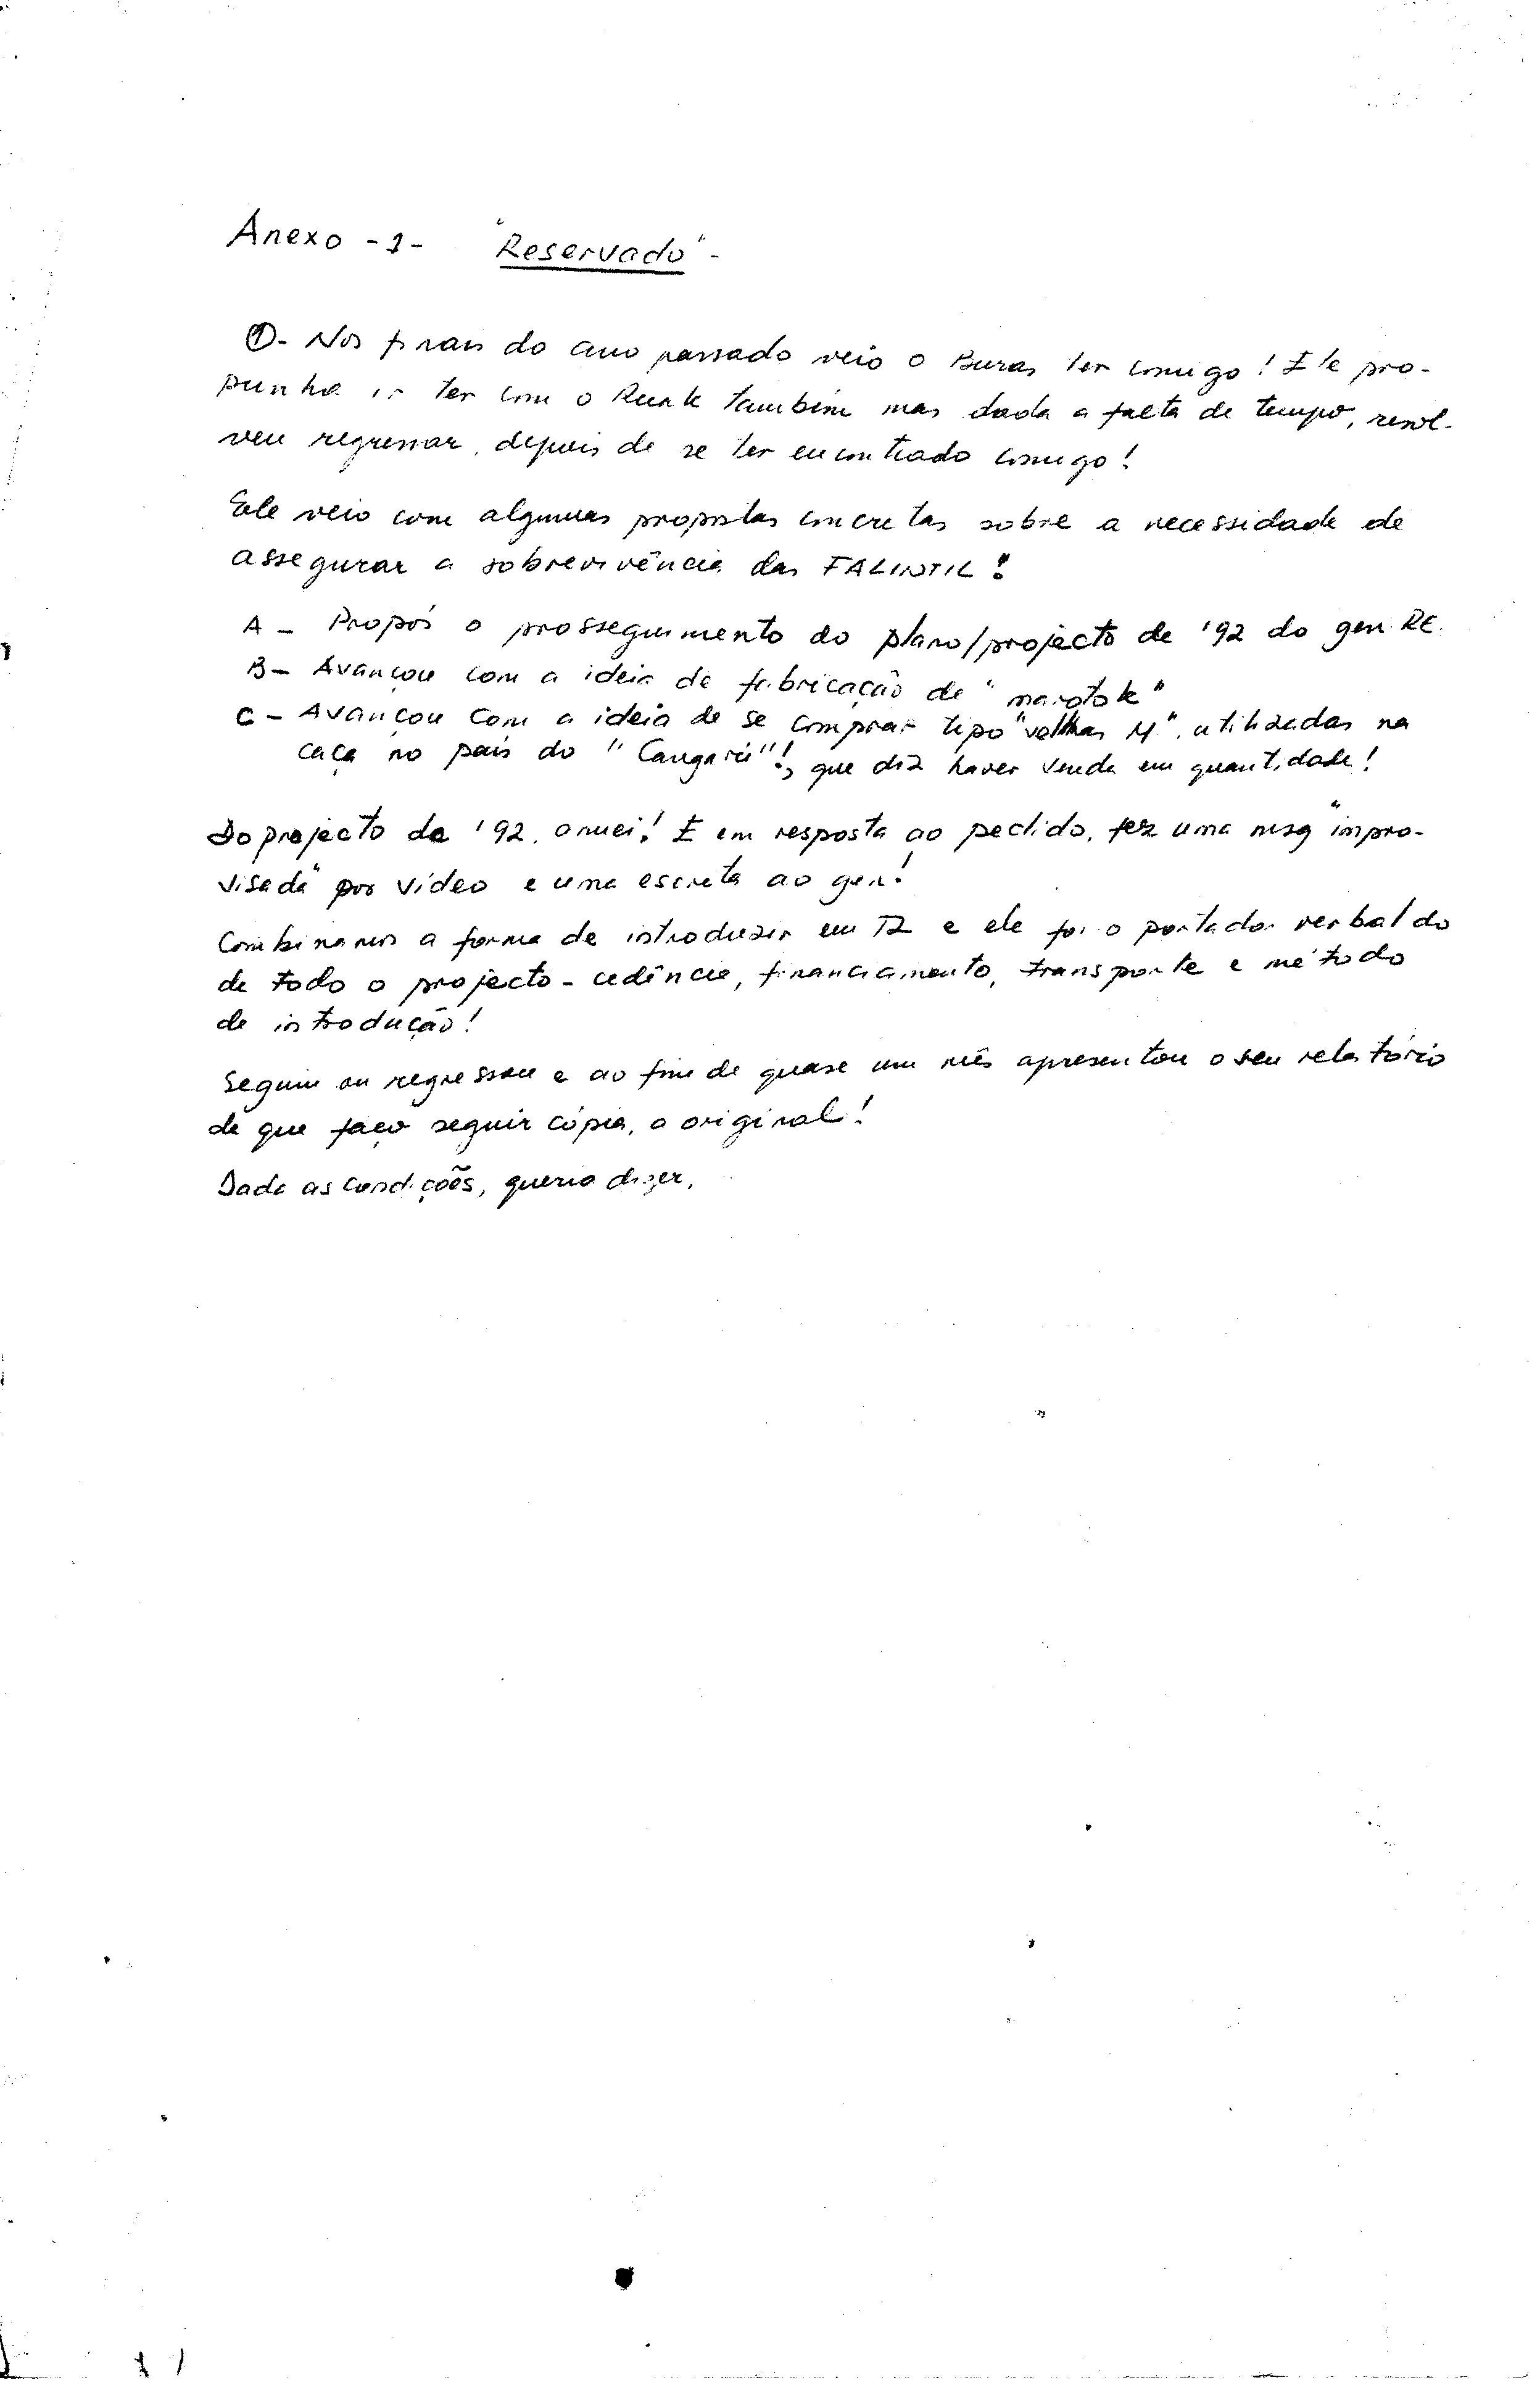 Anexo -1- "Reservado" -
①- Nos finais do ano passado veio o Buras ter comigo! Ele pro-
punha ir ter com o Ruak também mas dada a falta de tempo, resol-
veu regressar, depois de se ter encontrado comigo!
Ele veio com algumas propostas concretas sobre a necessidade de
assegurar a sobrevivência das FALINTIL!
A - Propôs o prosseguimento do plano/projecto de '92 do gen. RE.
B - Avançou com a ideia de fabricação de "marotok"
C - Avançou com a ideia de se comprar tipo "velhas M", utilizadas na
caça no país do "Canguru"!, que diz haver venda em quantidade!
Do projecto de '92, anuei! E em resposta ao pedido, fez uma msg "impro-
visada" por vídeo e uma escrita ao gen!
Combinamos a forma de introduzir em TL e ele foi o portador verbal do
de todo o projecto - cedência, financiamento, transporte e método
de introdução!
Seguiu ou regressou e ao fim de quase um mês apresentou o seu relatório
de que faço seguir cópia, o original!
Dada as condições, queria dizer,